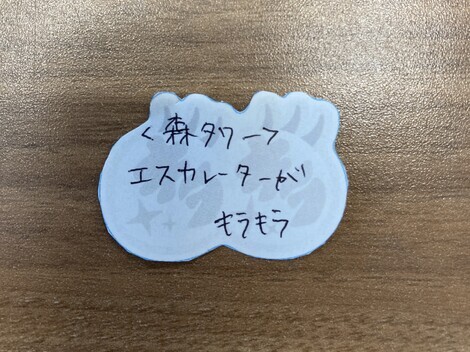 <森タワー>
エスカレーターが
キラキラ